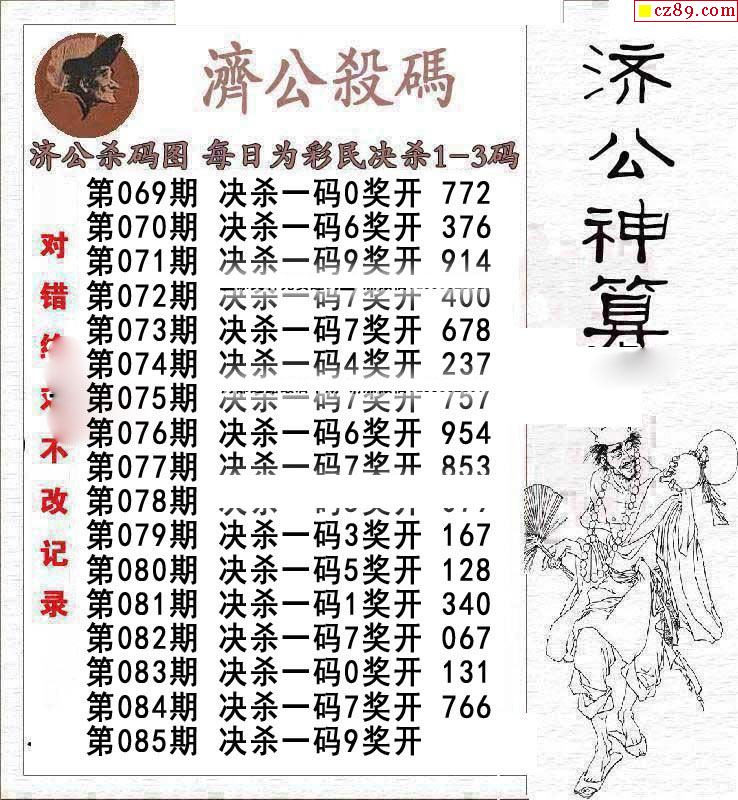 cz89.com
濟公殺碼
济公杀码图 每日为彩民决杀1-3码
第069期 决杀一码0奖开 772
第070期 决杀一码6奖开 376
第071期 决杀一码9奖开 914
第072期 决杀一码7奖开 400
第073期 决杀一码7奖开 678
第074期 决杀一码4奖开 237
第075期 决杀一码7奖开 757
第076期 决杀一码6奖开 954
第077期 决杀一码7奖开 853
第078期
第079期 决杀一码3奖开 167
第080期 决杀一码5奖开 128
第081期 决杀一码1奖开 340
第082期 决杀一码7奖开 067
第083期 决杀一码0奖开 131
第084期 决杀一码7奖开 766
第085期 决杀一码9奖开
对错 不改记录
济公神算